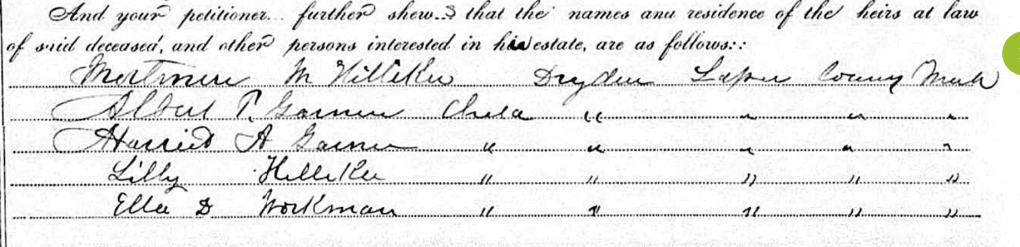 And your petitioner.. further shew..s that the names and residence of the heirs at law
of said deceased, and other persons interested in his estate, are as follows::
Mortimere M Hilliker Dryden Lapeer County Mich
Albert P. Garner Child " " " "
Harried A Garner " " " " "
Lilly Hilliker " " " " "
Ella D Workman " " " " "